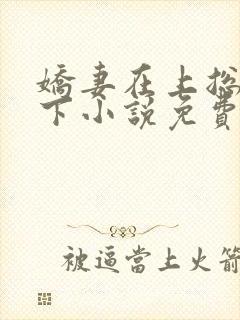 嬌妻在上總
下小說免費
被逼當上火箭